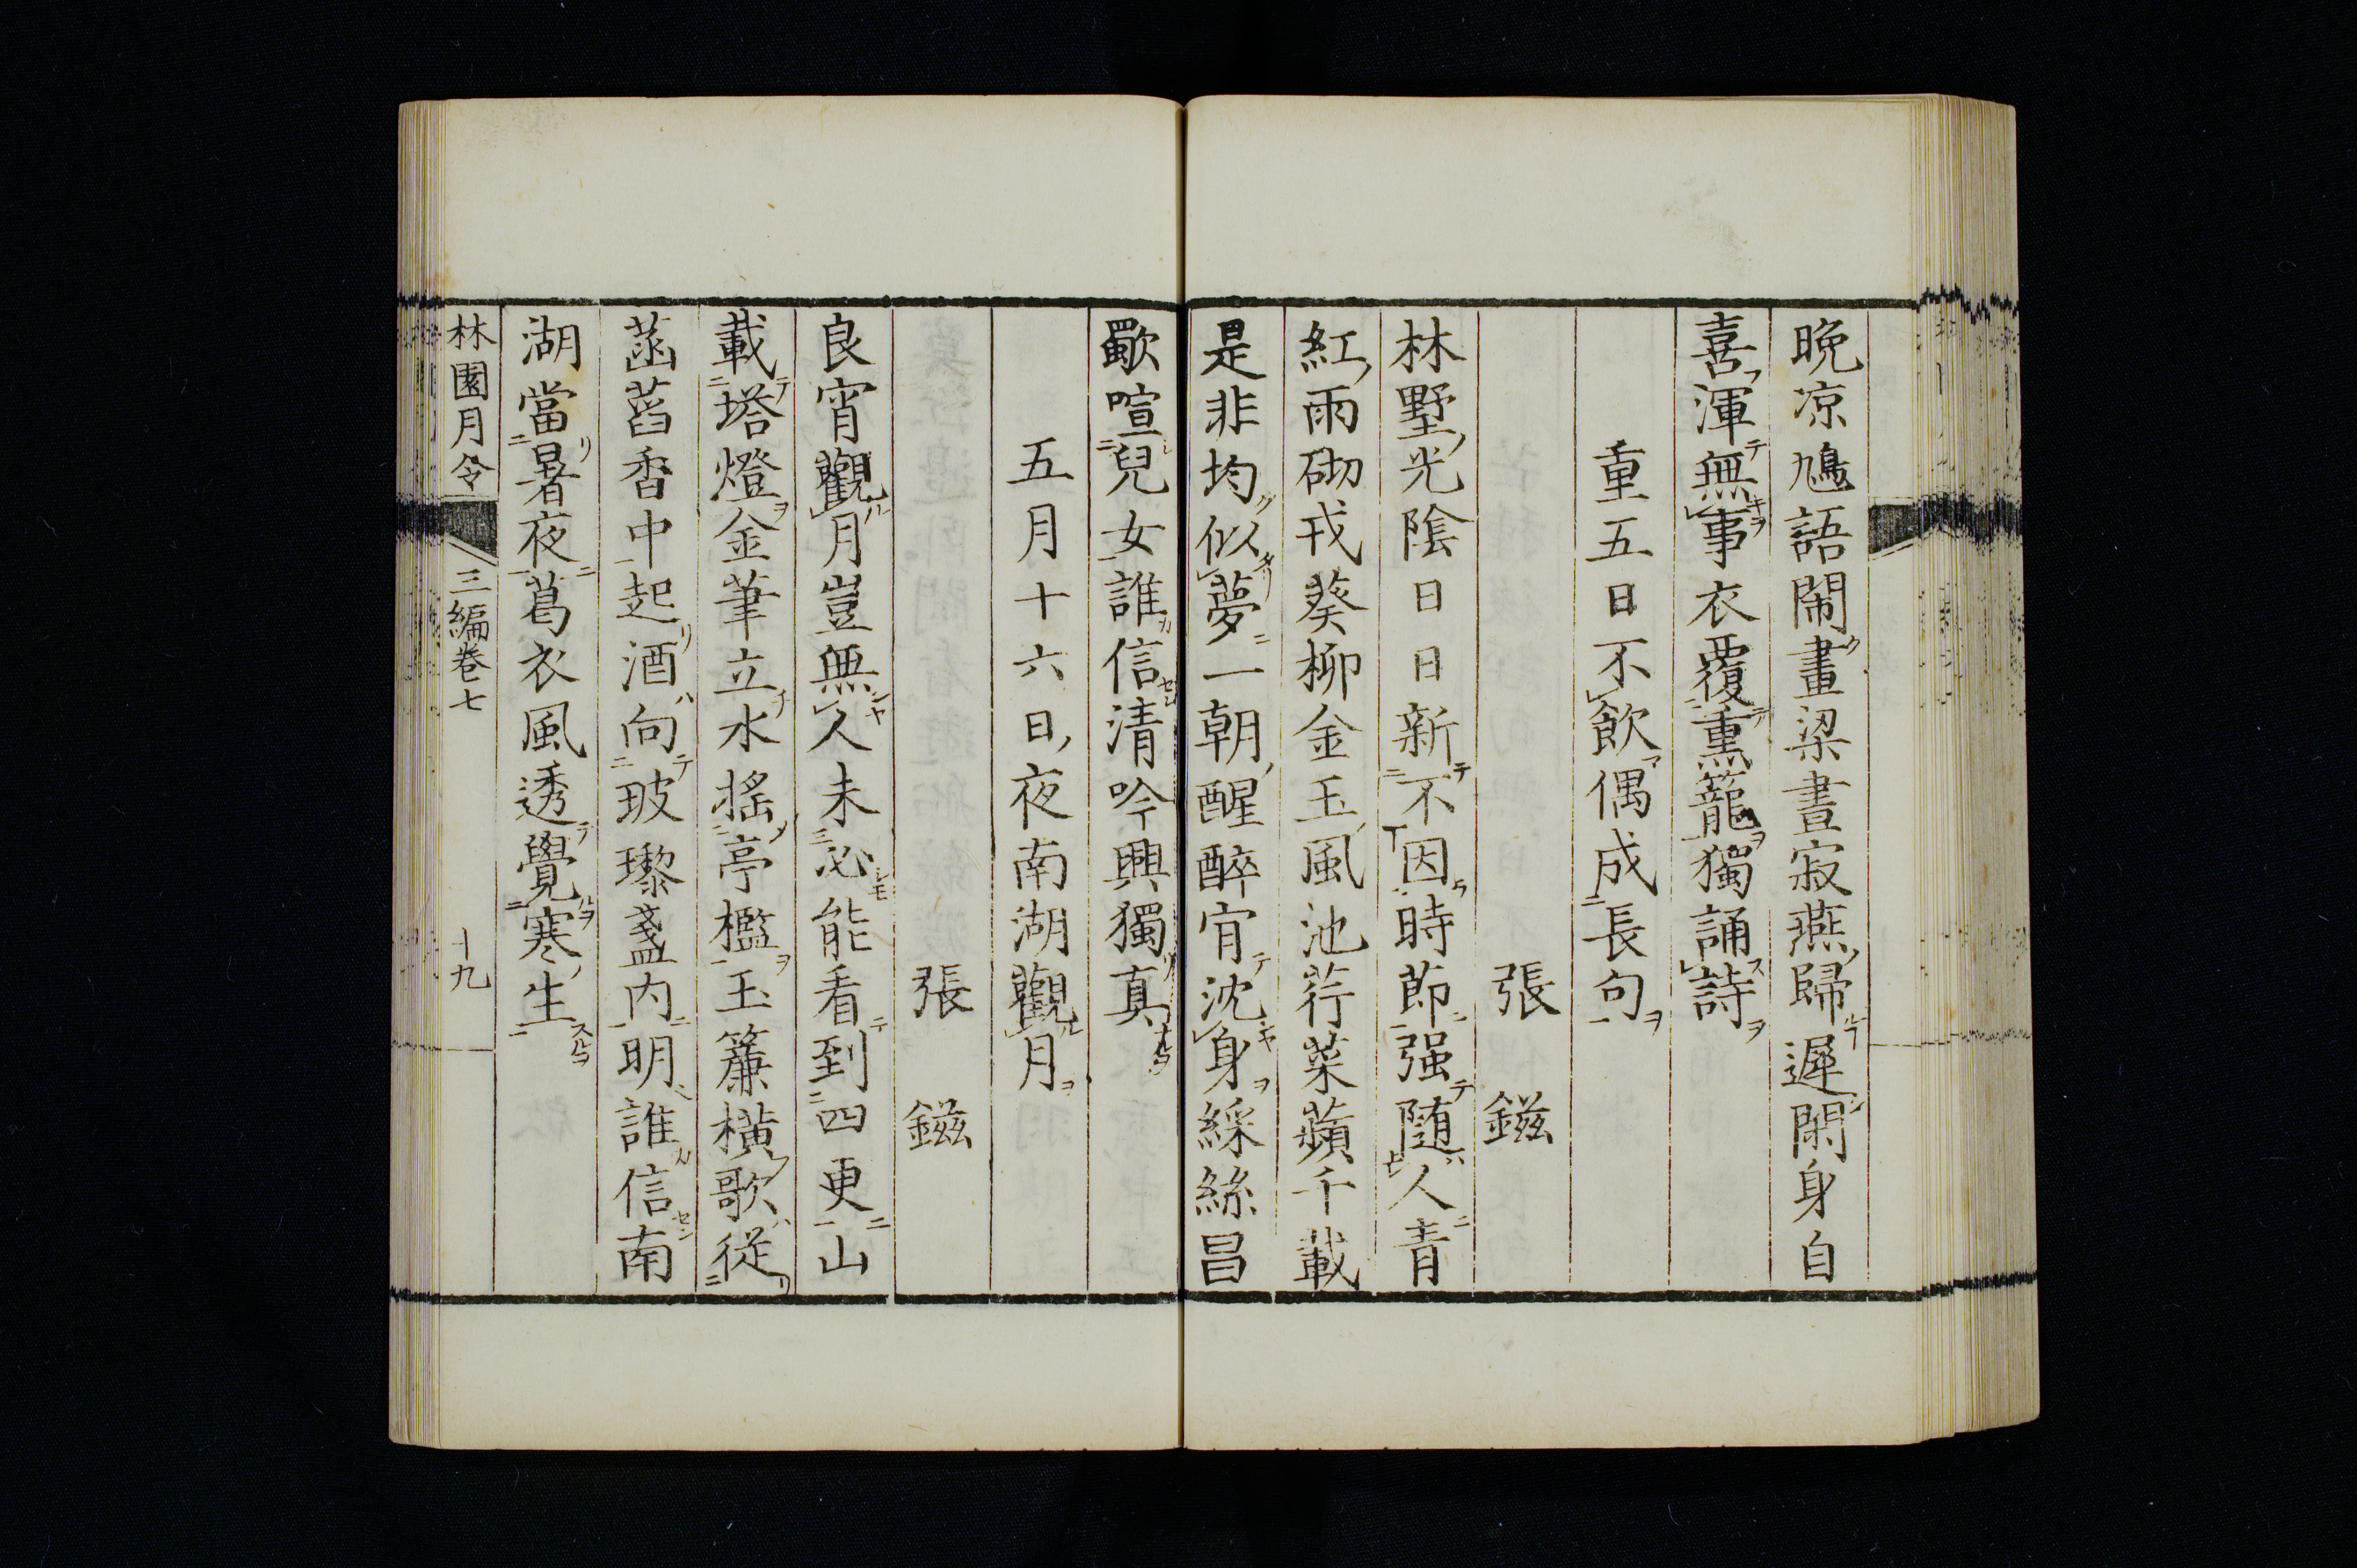 晩凉鳩語閙畫梁晝寂燕歸遲閑身自
喜渾無事衣覆熏籠獨誦詩
重五日不飲偶成長句
張鎡
林墅光陰日日新不因時節强随人青
紅雨砌戎葵柳金玉風池荇菜蘋千載
是非均似夢一朝醒醉肯沈身綵絲昌
歜喧兒女誰信清吟興獨真
五月十六日夜南湖觀月
張鎡
良宵觀月豈無人未必能看到四更山
載塔燈金筆立水搖亭檻玉簾横歌從
菡萏香中起酒向玻瓈盞内明誰信南
湖當暑夜葛衣風透覺寒生
林園月令 三編卷七 十九